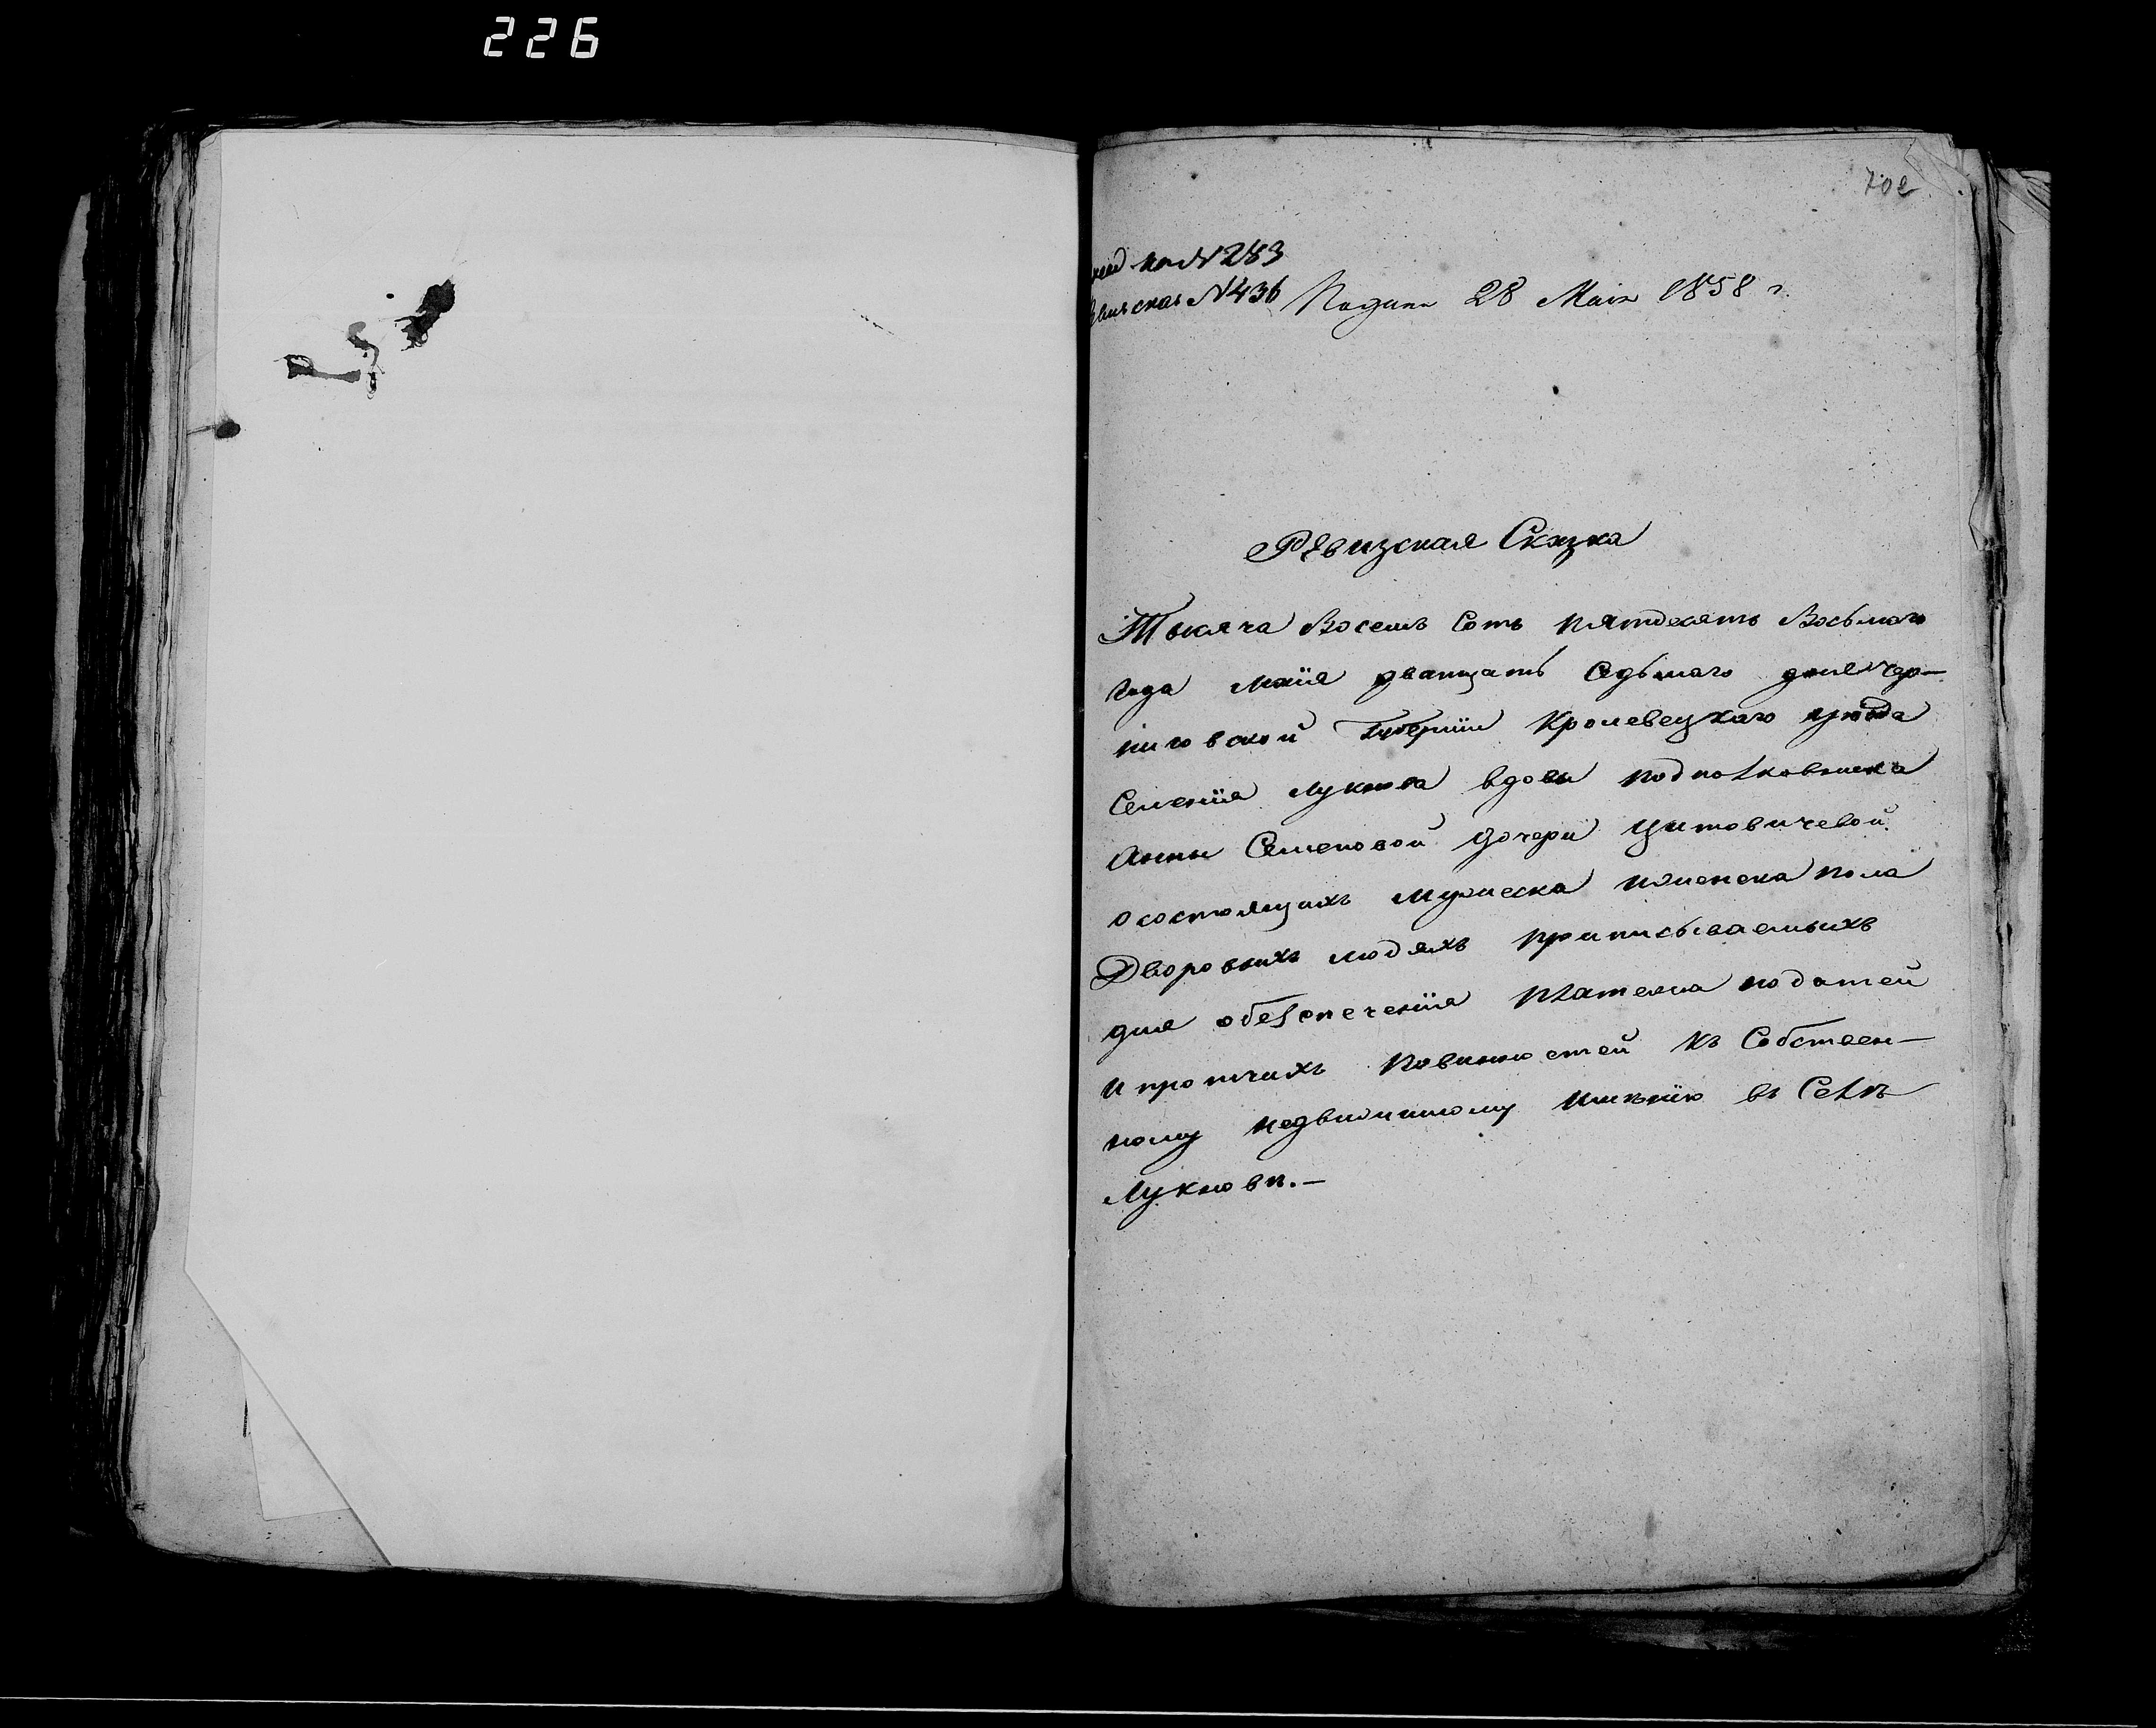 226
702
по № 283
№ 436 Подана 28 Маія 1858 г.
Ревизская Сказка
Тысяча Восемь Сотъ пятдесятъ Восьмаго
Года Маія дватцать Седьмаго дня Чер-
ниговской Губерніи Кролевецкаго уезда
Селенія Лукнова вдовы подполковника
Анны Семеновой дочери Цитовичевой
о состоящихъ мужеска и женска пола
Дворовыхъ людяхъ приписываемыхъ
для обезпеченія платежа податей
и протчихъ повинностей къ Собствен-
ному недвижимому имѣнію въ Селѣ
Лукновѣ.—